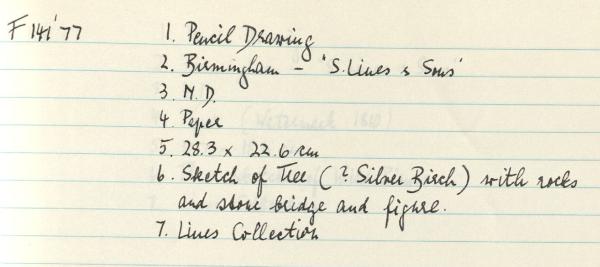 F141'77 1. Pencil Drawing
2. Birmingham - 'S. Lines & Sons'
3. N.D.
4. Paper
5. 28.3 x 22.6 cm
6. Sketch of Tree (? Silver Birch) with rocks
and stone bridge and figure.
7. Lines Collection